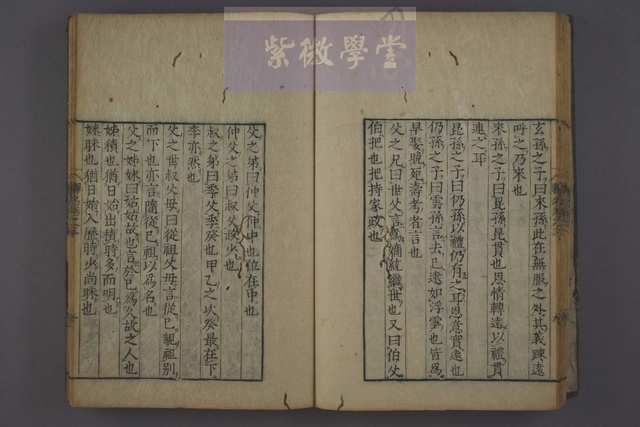 紫微學堂
玄孫之子曰來孫此在無服之外其義踈遠
呼之乃來也
來孫之子曰昆孫昆貫也恩情轉遠以禮貫
連之耳
昆孫之子曰仍孫以禮仍有之耳恩意實遠也
仍孫之子曰雲孫言去已遠如浮雲也皆爲
早娶晚死壽考者言也
父之兄曰世父言爲嫡統繼世也又曰伯父
伯把也把持家政也
父之弟曰仲父仲中也位在中也
仲父之弟曰叔父叔少也
叔之弟曰季父季癸也甲乙之次癸最在下
季亦然也
父之世叔父母曰從祖父母言從己親祖別
而下也亦言隨從己祖以爲名也
父之姊妹曰姑姑故也言於己爲久故之人也
姊積也猶日始出積時多而明也
妹昧也猶日始入歷時少尚昧也